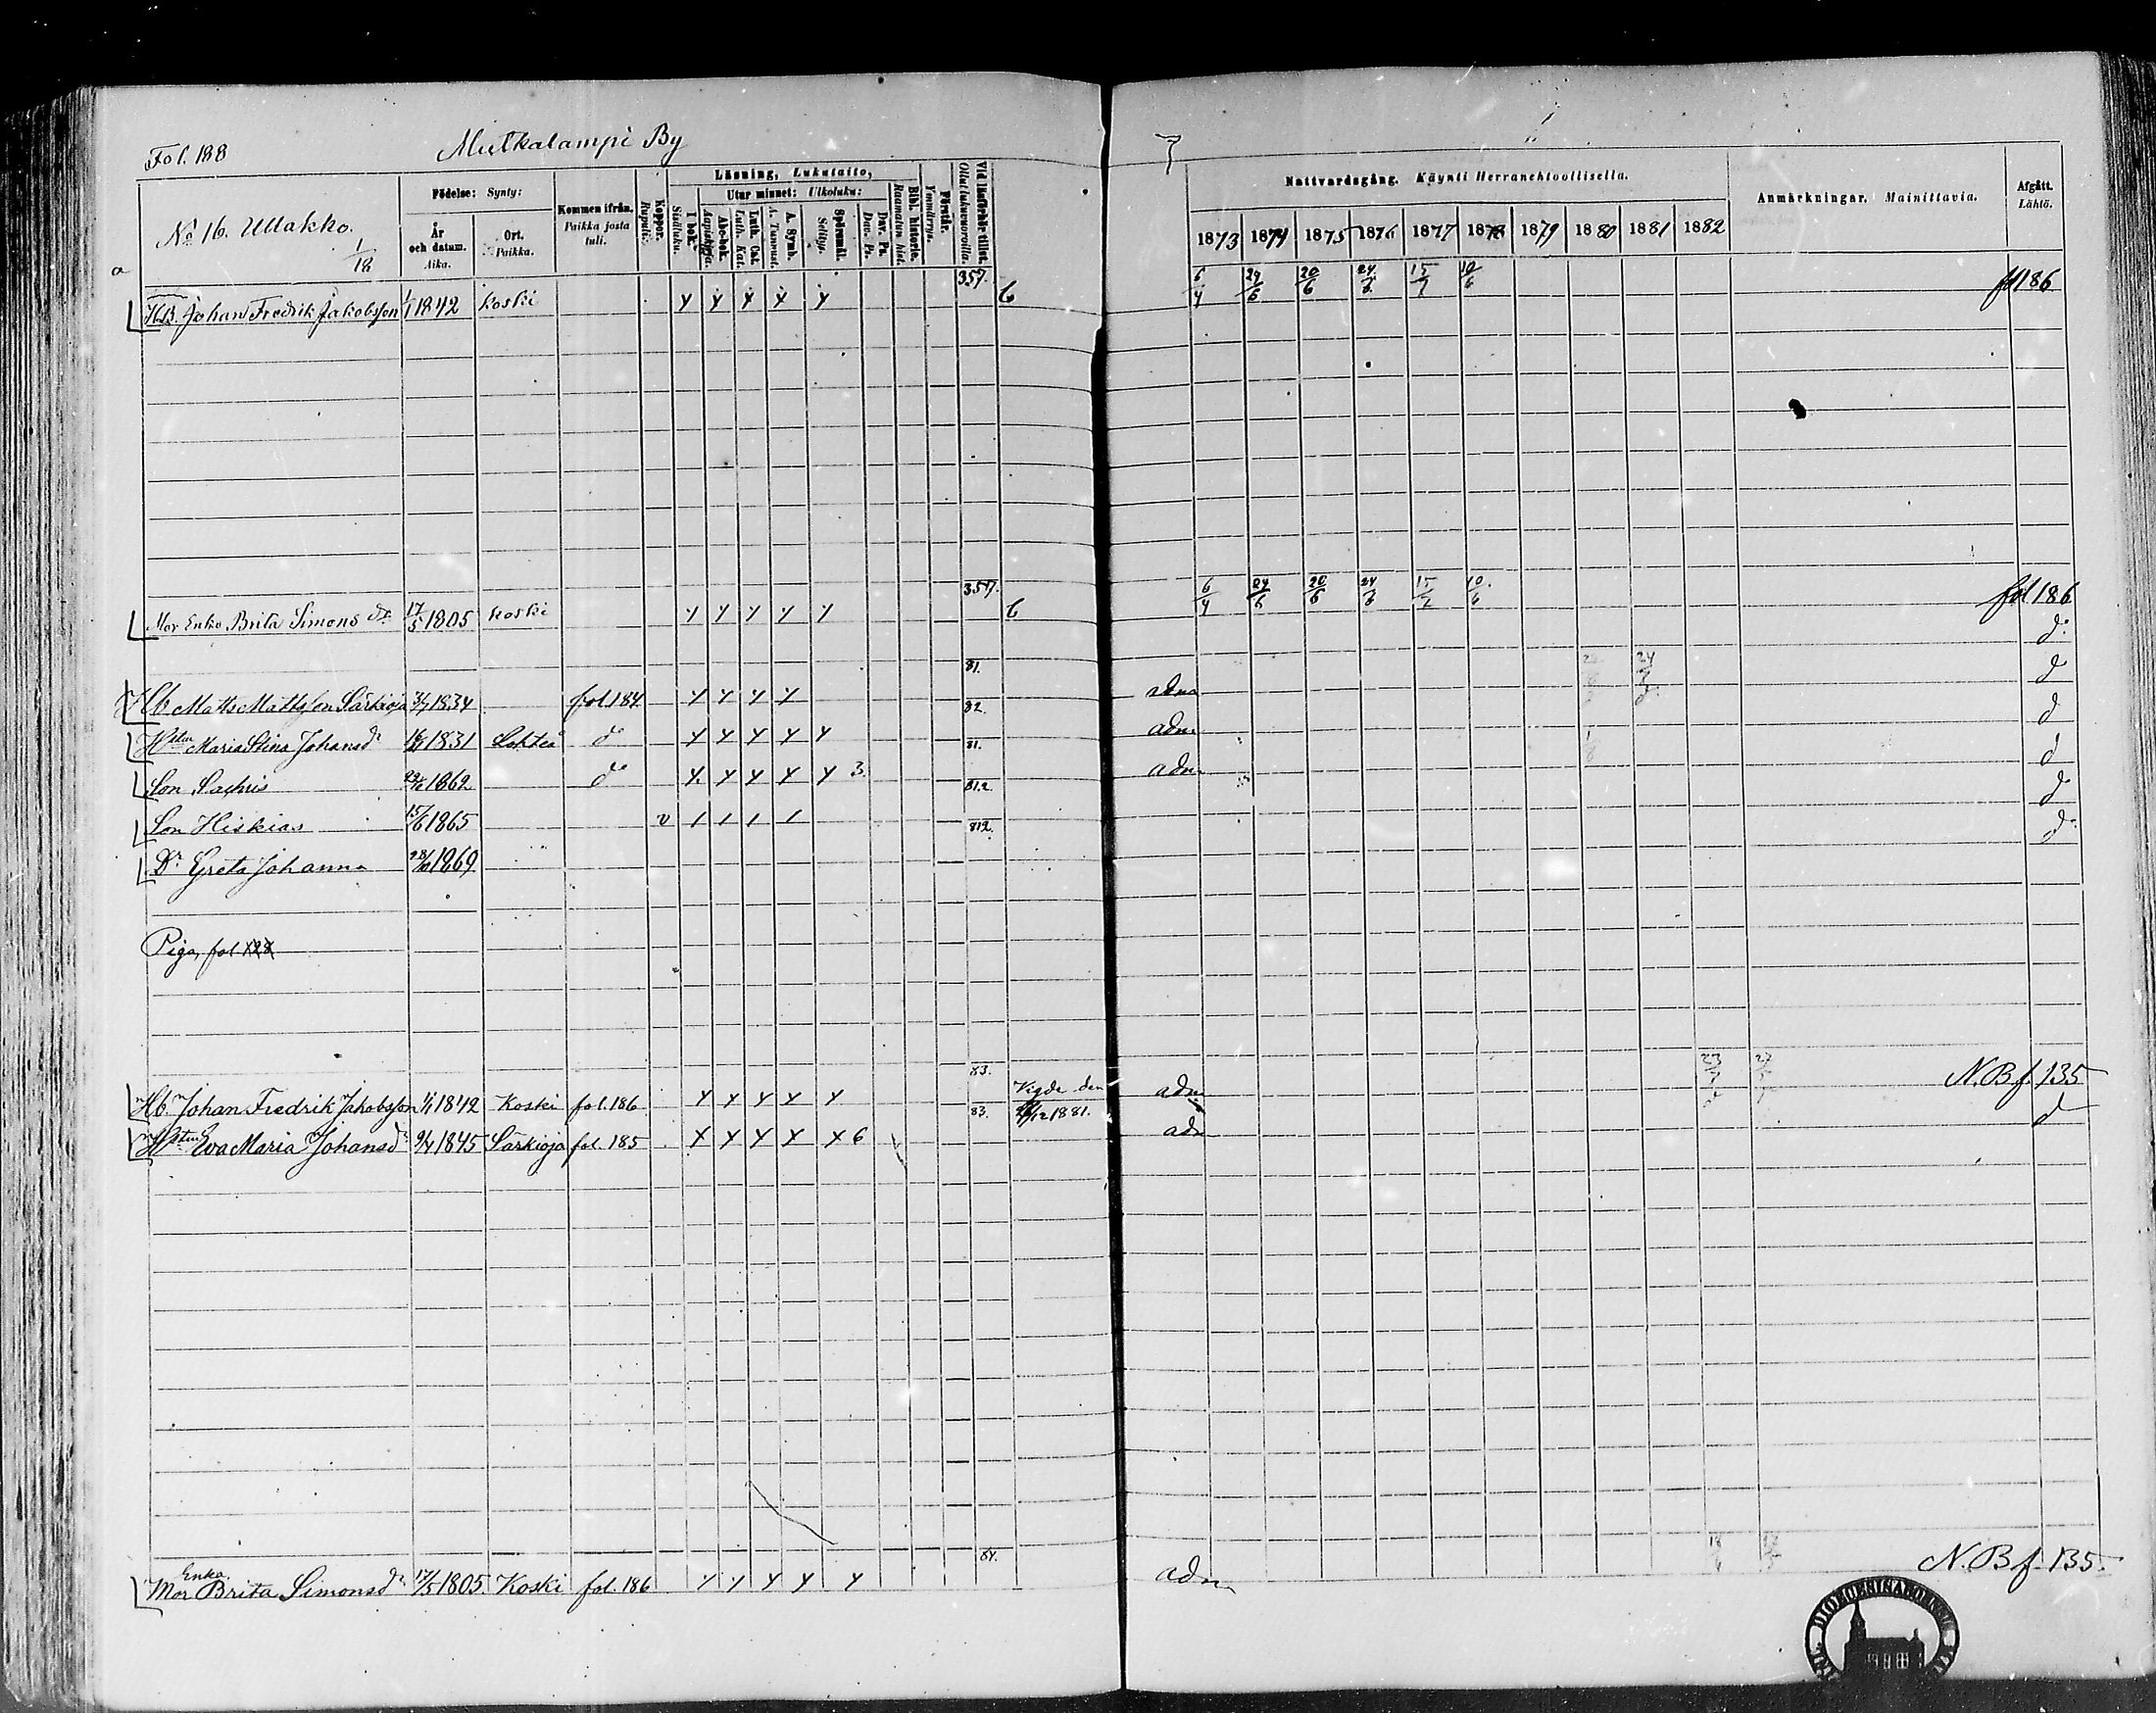 Fol. 188 Mutkalampi By
No 16. Ullakko. 1/18
Födelse: Synty:
År och datum. Aika.
Ort. Paikka.
Kommen ifrån. Paikka josta tuli.
Koppor. Rupuli.
Läsning, Lukutaito,
I bok. Sisäluku.
Utur minnet: Ulkoluku:
Abc-bok. Aapiskirja.
Luth. Cat. Luth. Kat.
A. Symb. A. Tunnust.
Spörsmål. Selitys.
Dav. Ps. Dav. Ps.
Bibl. historie. Raamatun hist.
Förstår. Ymmärrys.
Vid läsförhör tillst. Ollut lukuvuoroilla.
Nattvardsgång. Käynti Herranehtoollisella.
1873 1874 1875 1876 1877 1878 1879 1880 1881 1882
Anmärkningar. Mainittavia.
Afgått. Lähtö.
a
HB. Johan Fredrik Jakobsson 1/1 1842 Koski y y y y y 357. 6 6/4 24/6 20/6 24/6 15/7 10/6 fol 186
Mor Enka Brita Simonsdr 17/5 1805 Koski y y y y y 357. 6 6/4 24/6 20/6 24/6 15/7 10/6 fol 186
do
Hb Matts Mattsson Särkioja 1834 fol. 184 y y y y 81. adm d
Hstru Maria Stina Johansdr 1831 Lohteå do y y y y y 82. adm d
Son Sachris 1862 do y y y y y 3 81. adm d
Son Hiskias 15/6 1865 v / / / / 81.2. d
Dr Greta Johanna 1869 812. do
Piga, fol.
Hb. Johan Fredrik Jakobsson 1/1 1842 Koski fol. 186 y y y y y 83. Vigde den adm N.B f. 135
Hstru Eva Maria Johansdr 9/4 1845 Särkioja fol. 185 x y y x x 6 83. /12 1881. adm d
Enka
Mor Brita Simonsdr 17/5 1805 Koski fol. 186 y y y y y 84. adm N.B f. 135.